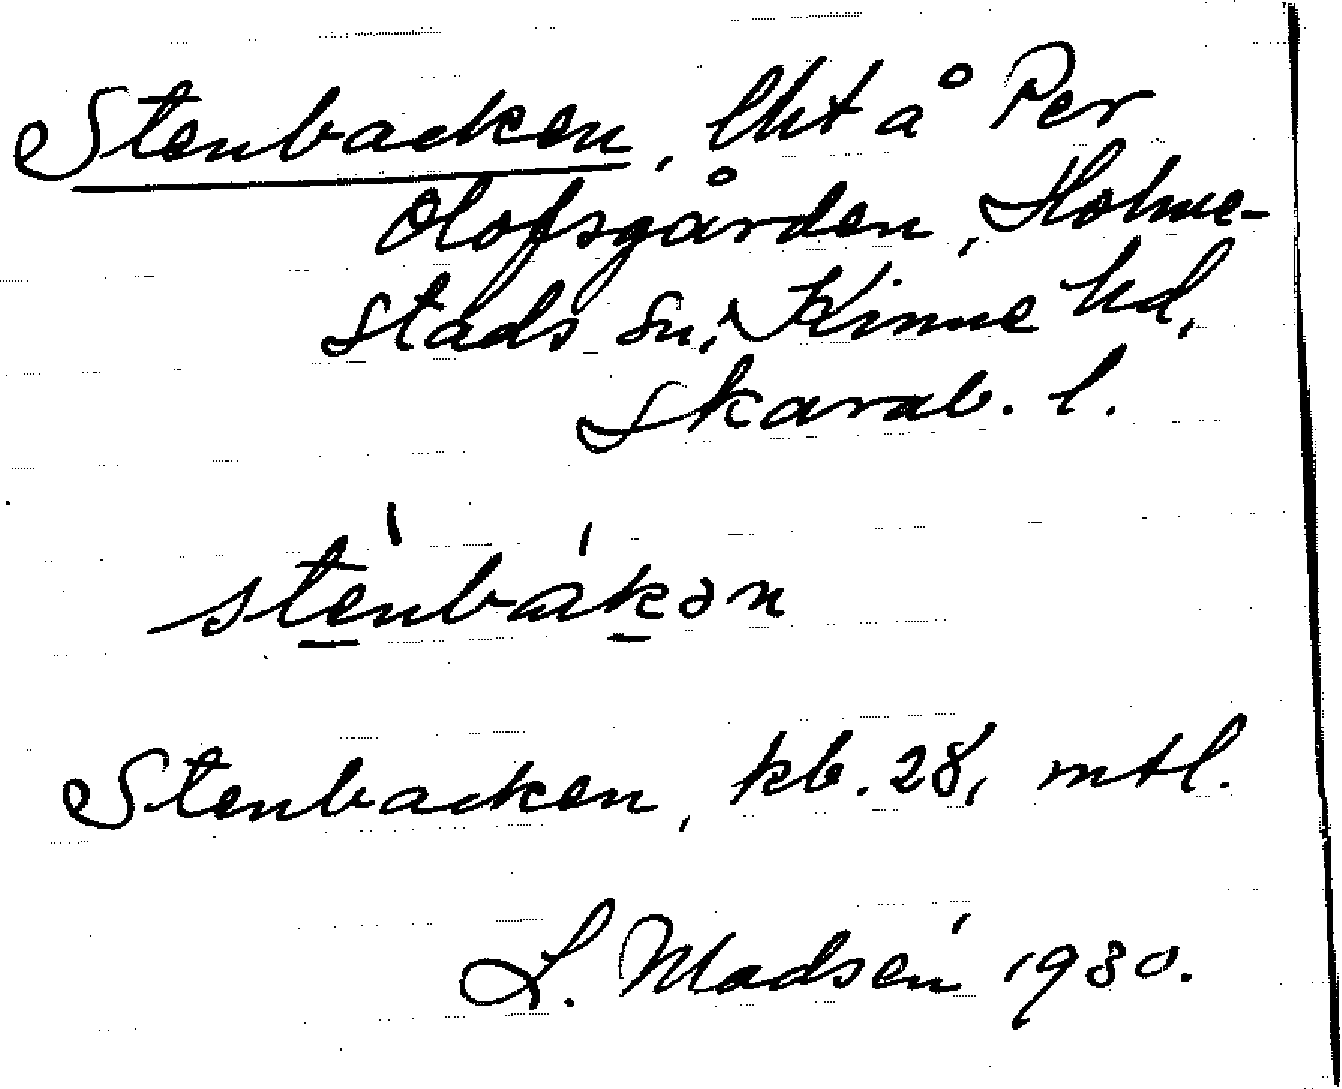 Stenbacken, lht å Per
Olofsgården, Holme-
stads sn, Kinne hd,
Skarab. l.
ste̱´nbàḵən
Stenbacken, kb. 28, mtl.
L. Madsén 1930.